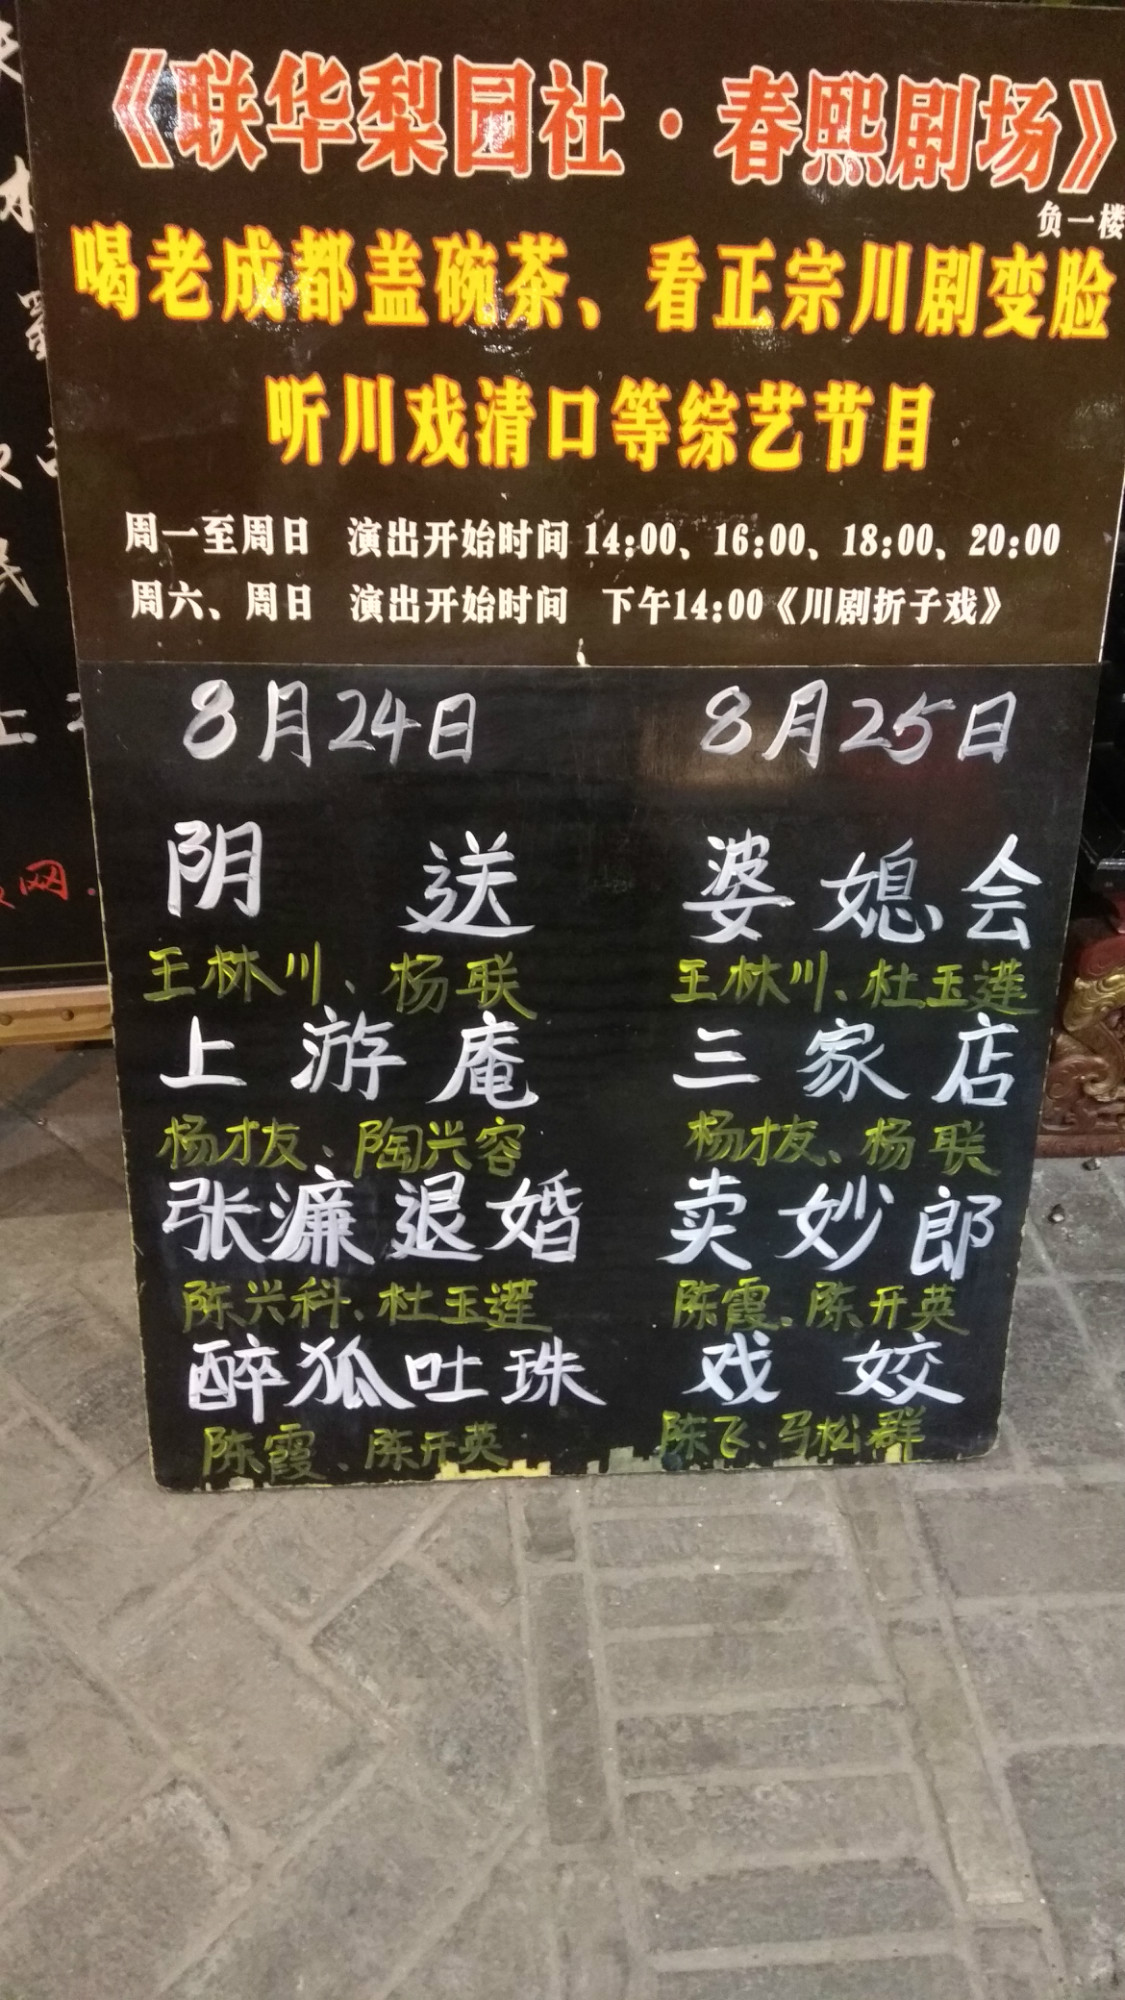 《联华梨园社·春熙剧场》
负一楼
喝老成都盖碗茶、看正宗川剧变脸
听川戏清口等综艺节目
周一至周日 演出开始时间 14:00、16:00、18:00、20:00
周六、周日 演出开始时间 下午14:00《川剧折子戏》
8月24日
阴 送
王林川、杨联
上游庵
杨才友、陶兴容
张濂退婚
陈兴科、杜玉莲
醉狐吐珠
陈霞、陈开英
8月25日
婆媳会
王林川、杜玉莲
三家店
杨才友、杨联
卖妙郎
陈霞、陈开英
戏姣
陈飞、马松群